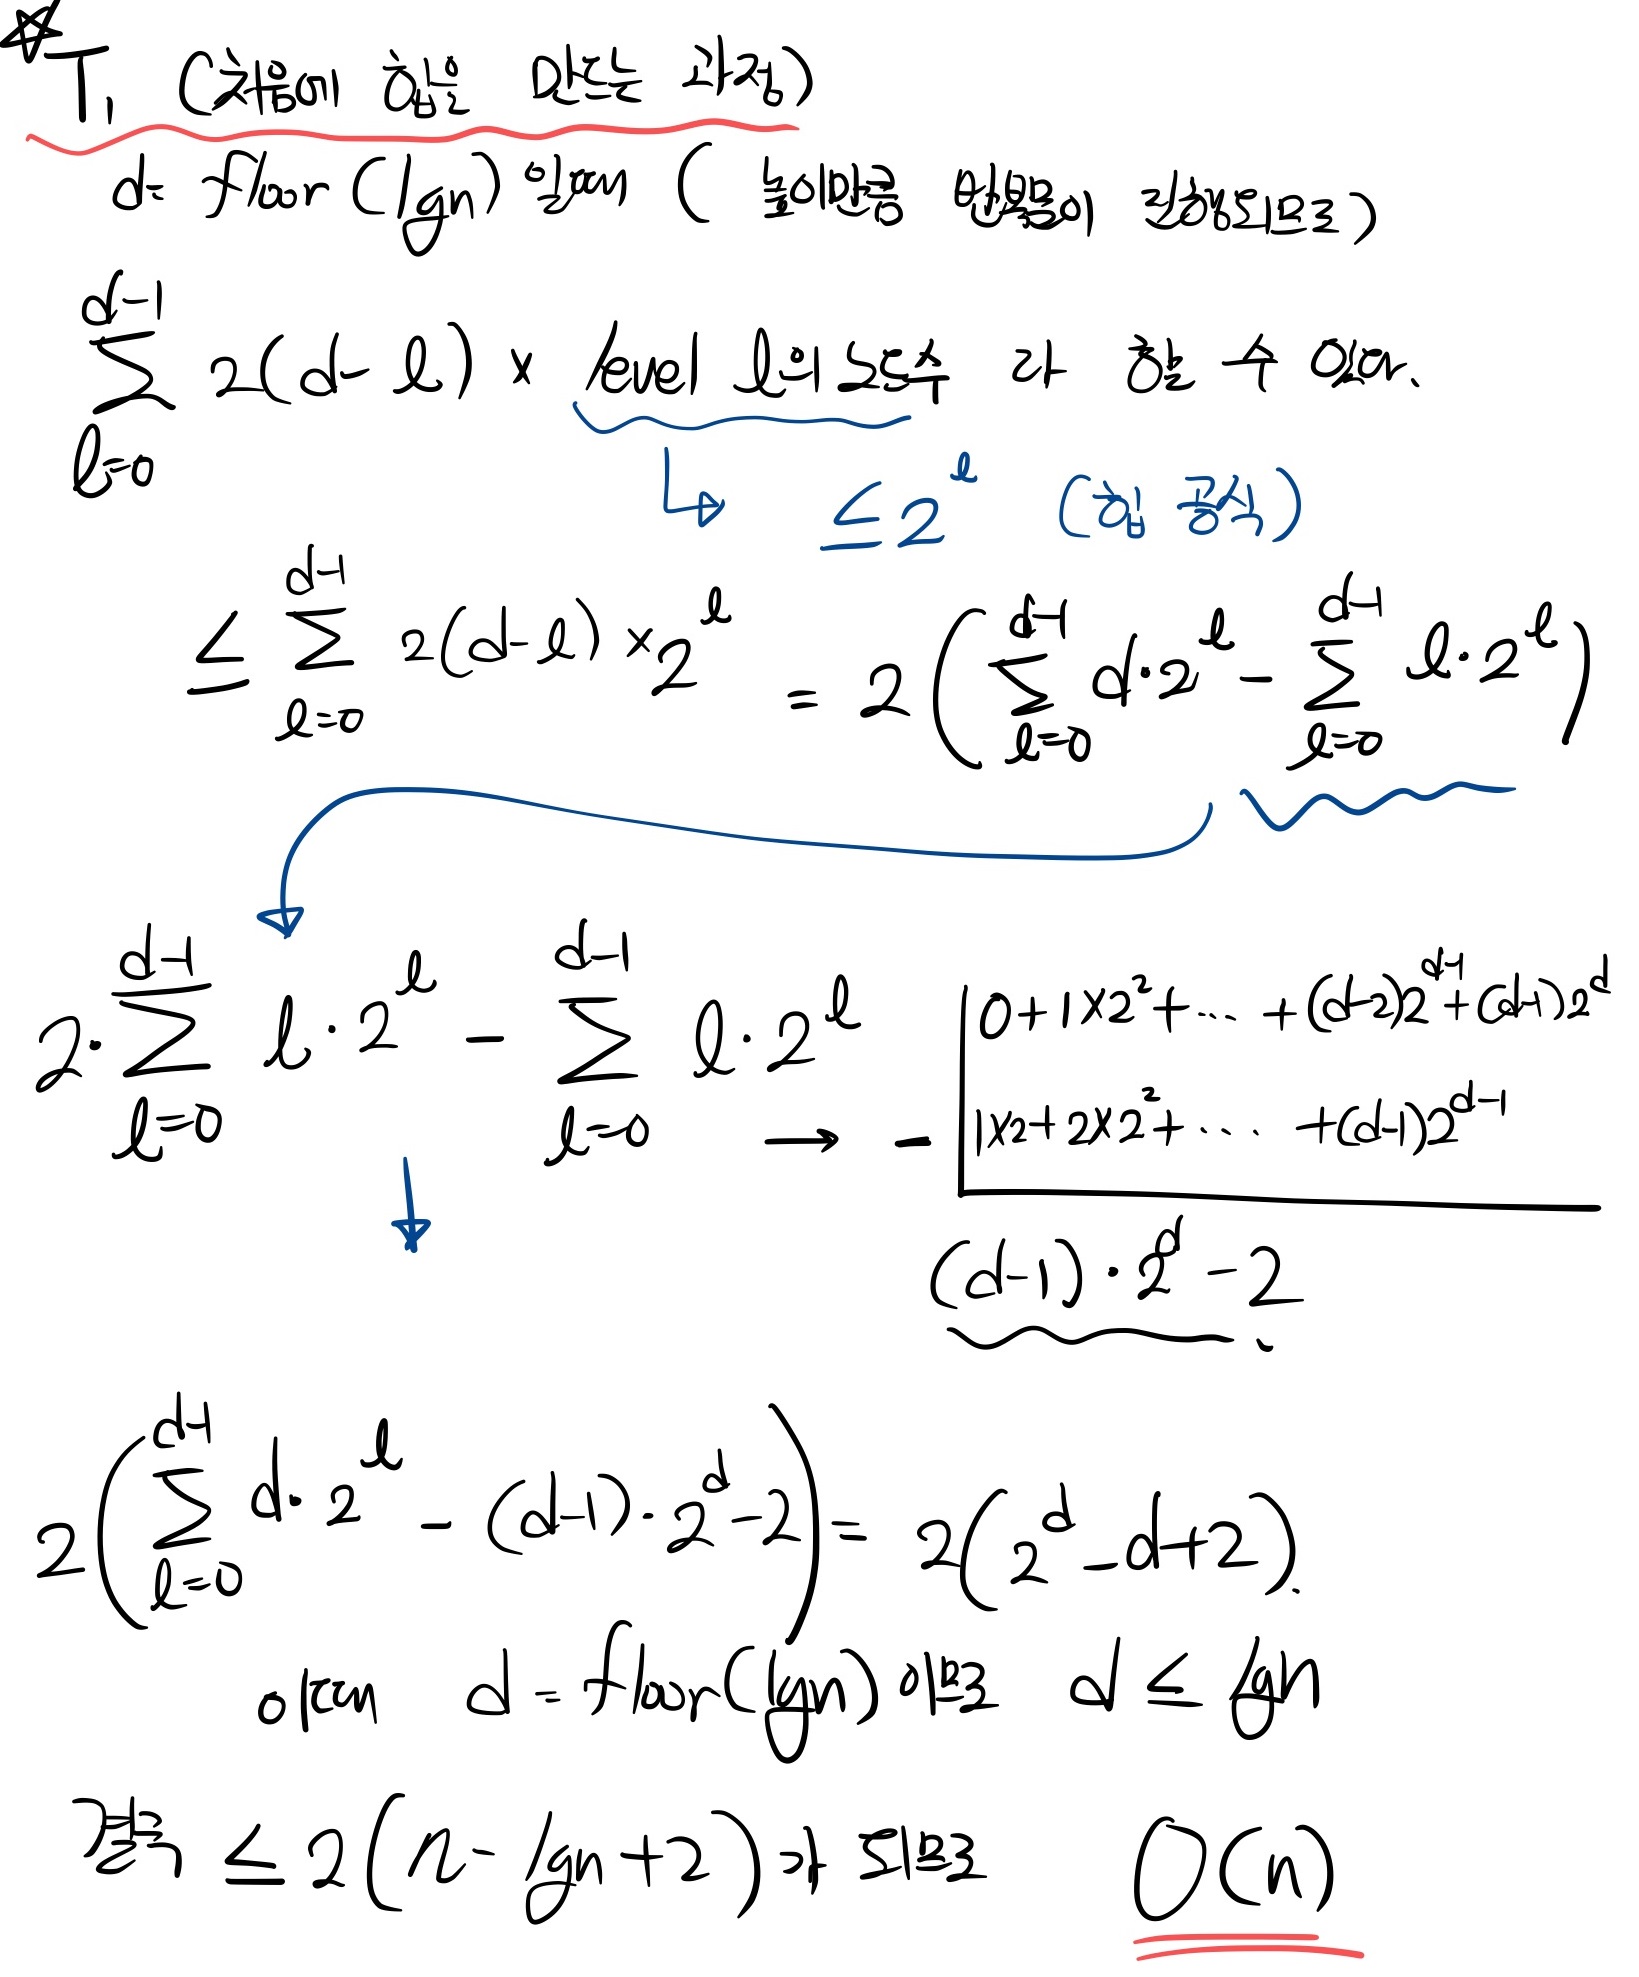 ☆ T₁ (처음에 힙을 만드는 과정)
d= floor(lgn) 일때 (높이만큼 반복문이 진행되므로)
∑_{l=0}^{d-1} 2(d-l) × level l의 노드수 라 할 수 있다.
↳ ≤2^l (힙 공식)
≤ ∑_{l=0}^{d-1} 2(d-l) × 2^l = 2(∑_{l=0}^{d-1} d·2^l - ∑_{l=0}^{d-1} l·2^l)
2·∑_{l=0}^{d-1} l·2^l - ∑_{l=0}^{d-1} l·2^l → - | 0+1×2²+ ... +(d-2)2^{d-1}+(d-1)2^d
1×2+2×2²+ .... +(d-1)2^{d-1}
(d-1)·2^d -2
2(∑_{l=0}^{d-1} d·2^l - (d-1)·2^d -2) = 2(2^d -d+2).
이때 d = floor(lgn) 이므로 d ≤ lgn
결국 ≤ 2(n-lgn+2)가 되므로 O(n)